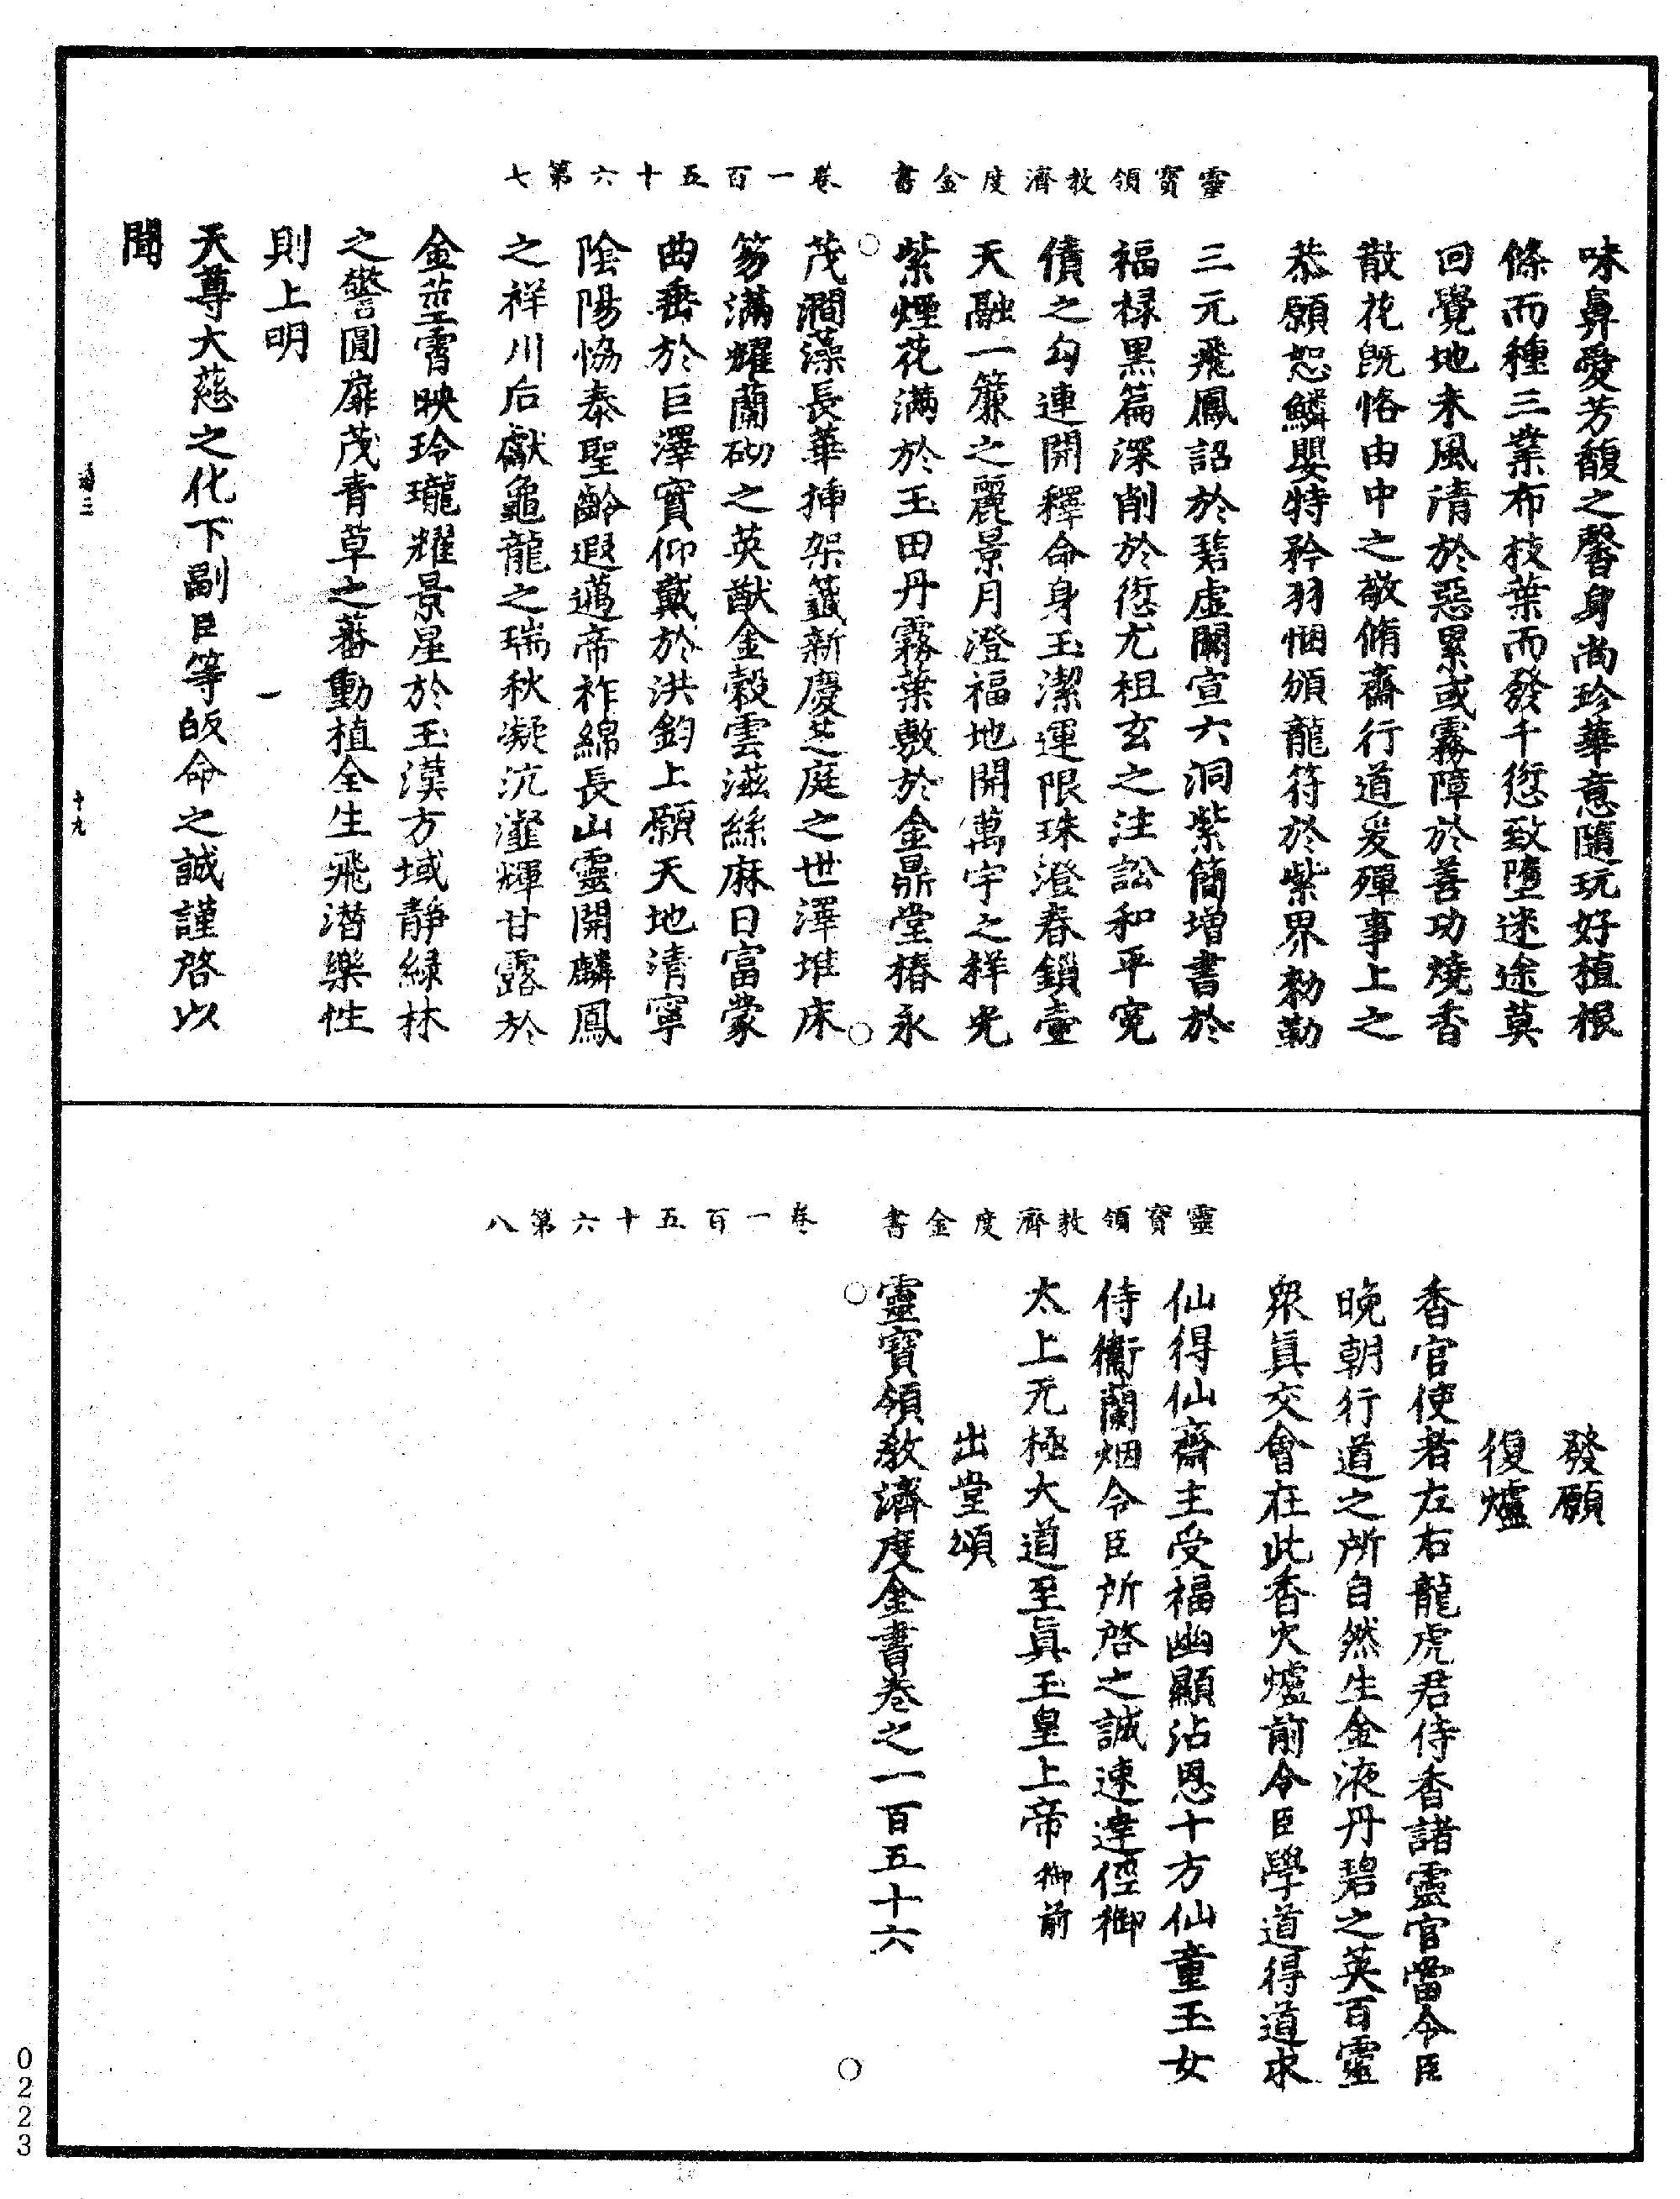 靈寶領教濟度金書　卷一百五十六第七
味鼻愛芳馥之馨身尚珍華意隨玩好植根
條而種三業布枝葉而發千愆致墮迷途莫
回覺地未風清於惡累或霧障於善功燒香
散花旣恪由中之敬脩齋行道爰殫事上之
恭願恕鱗嬰特矜羽悃頒龍符於紫界勑勒
三元飛鳳詔於碧虛闕宣六洞紫簡增書於
福祿黑篇深削於愆尤祖玄之注訟和平寃
債之勾連開釋命身玉潔運限珠澄春鎖壺
天融一簾之麗景月澄福地開萬宇之祥光
紫煙花满於玉田丹霧葉敷於金鼎堂椿永
茂澗藻長華揷架籤新慶芝庭之世澤堆床
笏滿耀蘭砌之英猷金穀雲滋絲麻日富蒙
曲垂於巨澤實仰戴於洪鈞上願天地清寧
陰陽恊泰聖齡遐邁帝祚綿長山靈開麟鳳
之祥川后獻龜龍之瑞秋凝沆瀣輝甘露於
金莖霄映玲瓏耀景星於玉漢方域靜綠林
之警圓扉茂青草之蕃動植全生飛潛樂性
則上明
天尊大慈之化下副臣等皈命之誠謹啓以
聞
十九
靈寶領教濟度金書　卷一百五十六第八
發願
復爐
香官使者左右龍虎君侍香諸靈官當令臣
晚朝行道之所自然生金液丹碧之英百靈
衆眞交會在此香火爐前令臣學道得道求
仙得仙齋主受福幽顯沾恩十方仙童玉女
侍衞蘭烟令臣所啓之誠速達徑御
太上无極大道至眞玉皇上帝御前
出堂頌
靈寶領敎濟度金書卷之一百五十六
0223